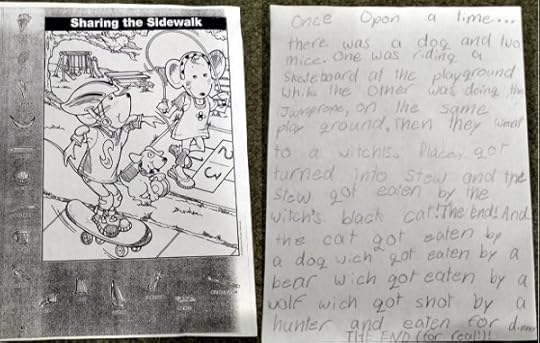 Sharing the Sidewalk
Once Upon a time...
there was a dog and two
mice. One was riding a
skateboard at the playground
while the other was doing the
jumprope, on the same
play ground. Then they went
to a witchs. Place, got
turned into stew and the
stew got eaten by the
witch's black cat! The end! And
the cat got eaten by
a dog wich got eaten by a
bear wich got eaten by a
wolf wich got shot by a
hunter and eaten for dinner
THE END (for real!)!